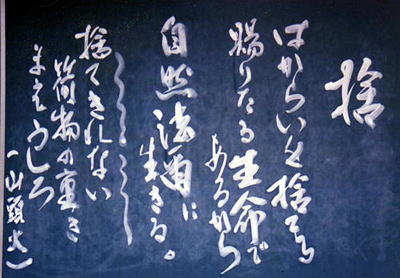 捨
はからいを捨てる
賜りたる生命で
あるから
自然法爾に
生きる。
捨てきれない
荷物の重さ
まえうしろ
（山頭火）